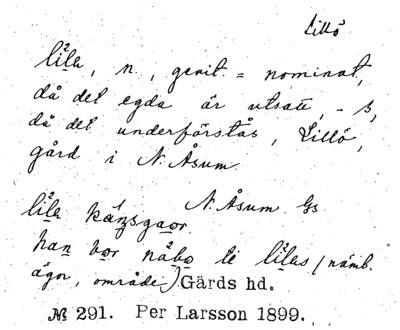 Lillö
lila, n., genit. = nominat,
då det egda är utsatt, - s,
då det underförstås, Lillö,
gård i N. Åsum.
N. Åsum Gs
lila
han bor te lilas (nämb.
ägor, område) Gärds hd.
№ 291. Per Larsson 1899.